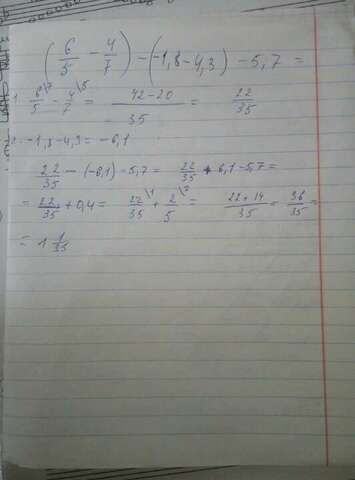 (6/5 - 4/7) - (-1,8 - 4,3) - 5,7 =
1 6\7/5 - 4\5/7 = 42-20/35 = 22/35
-1,8 - 4,3 = -6,1
22/35 - (-6,1) - 5,7 = 22/35 + 6,1 - 5,7 =
= 22/35 + 0,4 = 22\1/35 + 2\7/5 = 22+14/35 = 36/35 =
= 1 1/35